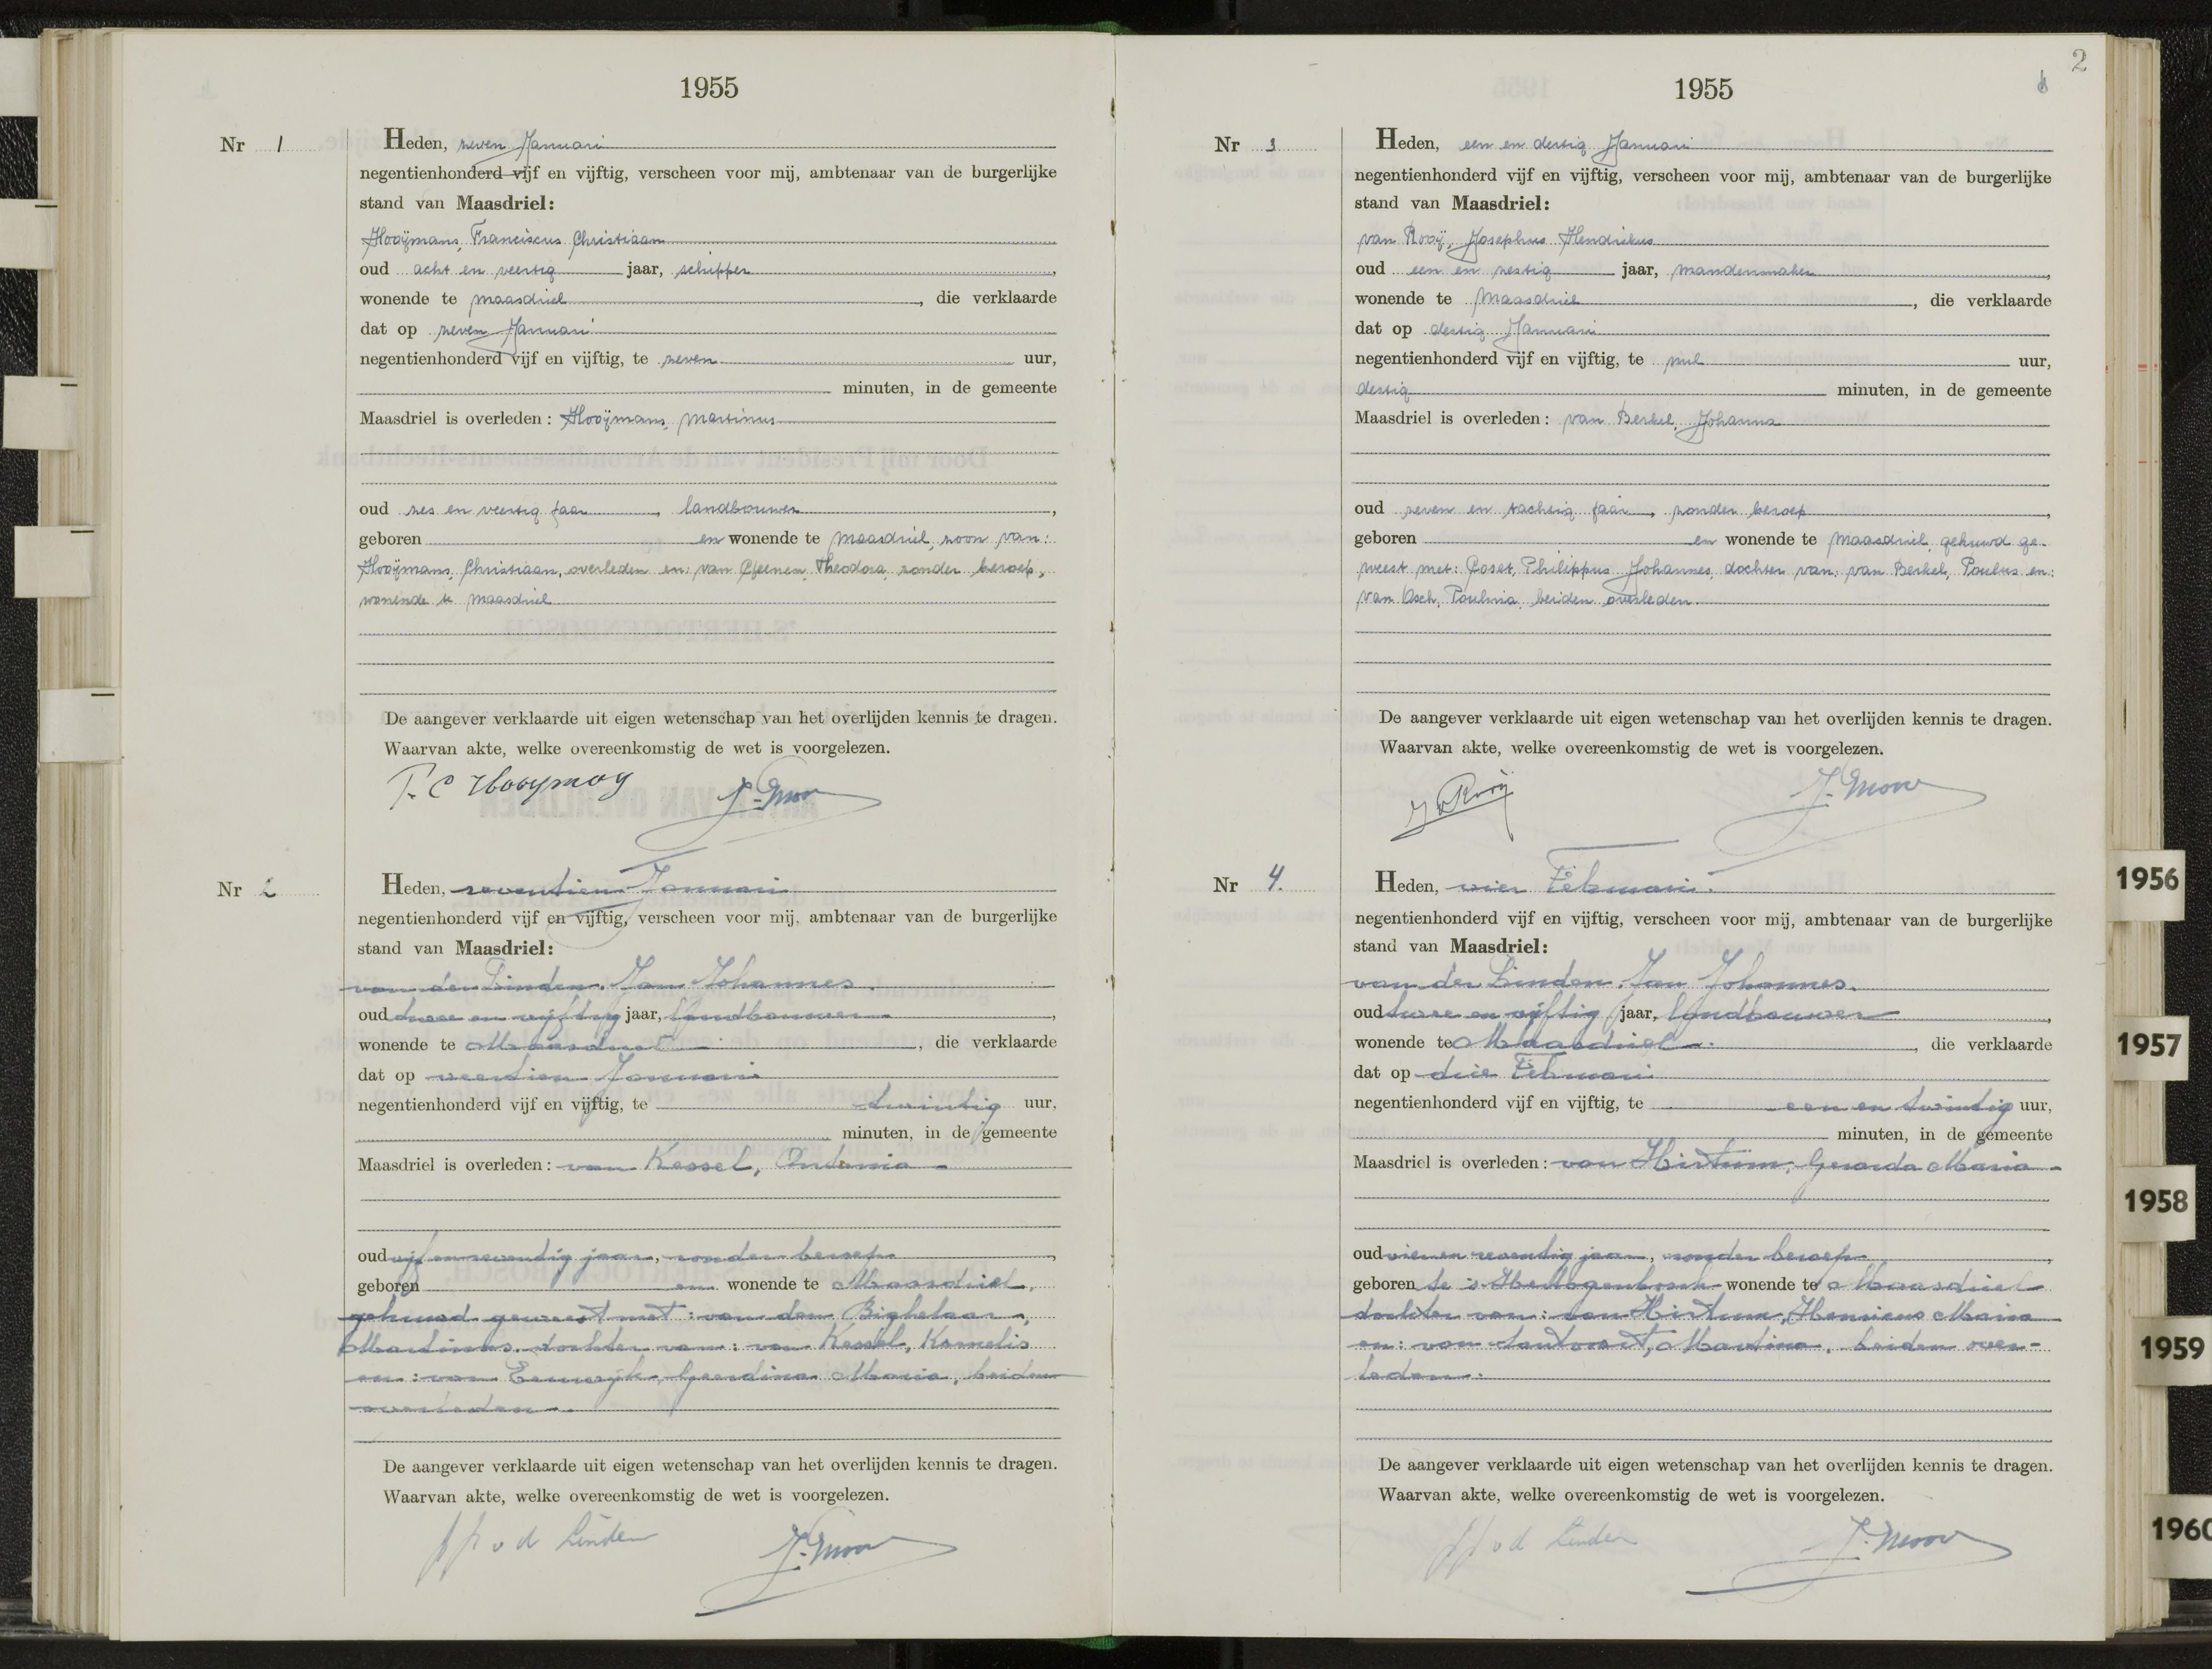 1955
Nr 1
Heden, zeven Januari
negentienhonderd vijf en vijftig, verscheen voor mij, ambtenaar van de burgerlijke
stand van Maasdriel:
Hooÿmans, Franciscus Christiaan
oud acht en veertig jaar, schipper,
wonende te Maasdriel, die verklaarde
dat op zeven Januari
negentienhonderd vijf en vijftig, te zeven uur,
minuten, in de gemeente
Maasdriel is overleden: Hooÿmans, Martinus
oud zes en veertig jaar, landbouwer,
geboren en wonende te Maasdriel, zoon van:
Hooÿmans, Christiaan, overleden en: van Theodora, zonder beroep,
wonende te Maasdriel
De aangever verklaarde uit eigen wetenschap van het overlijden kennis te dragen.
Waarvan akte, welke overeenkomstig de wet is voorgelezen.
Nr 2
Heden, zeventien Januari
negentienhonderd vijf en vijftig, verscheen voor mij, ambtenaar van de burgerlijke
stand van Maasdriel:
van der Linden, Jan Johannes.
oud twee en vijftig jaar, landbouwer,
wonende te Maasdriel, die verklaarde
dat op veertien Januari
negentienhonderd vijf en vijftig, te twintig uur,
minuten, in de gemeente
Maasdriel is overleden: van Kessel,
oud vijf en zeventig jaar, zonder beroep,
geboren en wonende te Maasdriel,
gehuwd geweest met: van den Bighelaar,
Martinus, dochter van: van Kessel, Kornelis
en: van Geerdina Maria, beiden
overleden.
De aangever verklaarde uit eigen wetenschap van het overlijden kennis te dragen.
Waarvan akte, welke overeenkomstig de wet is voorgelezen.
v d Linden
2
1955
Nr 3
Heden, een en dertig Januari
negentienhonderd vijf en vijftig, verscheen voor mij, ambtenaar van de burgerlijke
stand van Maasdriel:
van Rooÿ, Josephus Hendrikus
oud een en zestig jaar, mandenmaker,
wonende te Maasdriel, die verklaarde
dat op dertig Januari
negentienhonderd vijf en vijftig, te nul uur,
dertig minuten, in de gemeente
Maasdriel is overleden: van Berkel, Johanna
oud zeven en tachtig jaar, zonder beroep,
geboren en wonende te Maasdriel, gehuwd ge-
weest met: Philippus Johannes, dochter van: van Berkel, Paulus en:
van Osch, Paulina, beiden overleden.
De aangever verklaarde uit eigen wetenschap van het overlijden kennis te dragen.
Waarvan akte, welke overeenkomstig de wet is voorgelezen.
J v Rooÿ
Nr 4.
Heden, vier Februari.
negentienhonderd vijf en vijftig, verscheen voor mij, ambtenaar van de burgerlijke
stand van Maasdriel:
van der Linden, Jan Johannes.
oud twee en vijftig jaar, landbouwer,
wonende te Maasdriel, die verklaarde
dat op drie Februari
negentienhonderd vijf en vijftig, te een en twintig uur,
minuten, in de gemeente
Maasdriel is overleden: van Hirtum, Gerarda Maria
oud vier en zeventig jaar, zonder beroep,
geboren te 's-Hertogenbosch wonende te Maasdriel
dochter van: van Hirtum, Henricus Maria
en: van Martina, beiden over-
leden.
De aangever verklaarde uit eigen wetenschap van het overlijden kennis te dragen.
Waarvan akte, welke overeenkomstig de wet is voorgelezen.
v d Linden
1956
1957
1958
1959
1960